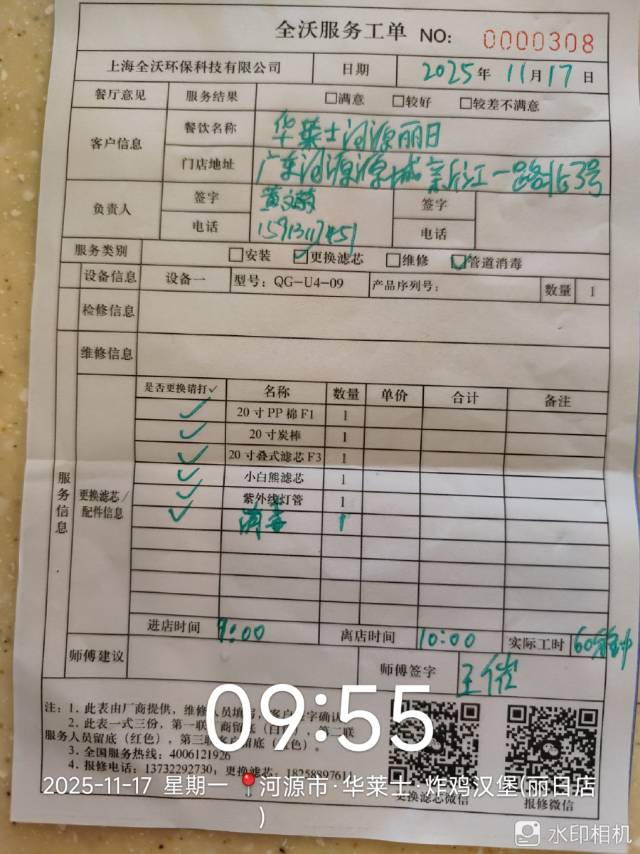 全沃服务工单 NO: 0000308
上海全沃环保科技有限公司 日期 2025年11月17日
餐厅意见 服务结果 □满意 □较好 □较差不满意
客户信息 餐饮名称 华莱士河源丽日
门店地址 广东河源源城新江一路北3号
负责人 签字 签字
电话 电话
服务类别 □安装 ☑更换滤芯 □维修 ☑管道消毒
设备信息 设备一 型号: QG-U4-09 产品序列号: 数量 1
检修信息
维修信息
服务信息 更换滤芯/配件信息
是否更换请打✓ 名称 数量 单价 合计 备注
✓ 20寸PP棉F1 1
✓ 20寸炭棒 1
✓ 20寸叠式滤芯F3 1
✓ 小白熊滤芯 1
✓ 紫外线灯管 1
✓ 消毒 1
进店时间 9:00 离店时间 10:00 实际工时 60分钟
师傅建议 师傅签字
注: 1. 此表由厂商提供, 维修人员填写, 客户签字确认
2. 此表一式三份, 第一联厂商留底(白色), 第二联
服务人员留底(红色), 第三联客户留底(蓝色)。
3. 全国服务热线: 4006121926
4. 报修电话: 13732292730, 更换滤芯: 1825889761
更换滤芯微信 报修微信
09:55
2025-11-17 星期一 河源市·华莱士·炸鸡汉堡(丽日店
)
水印相机